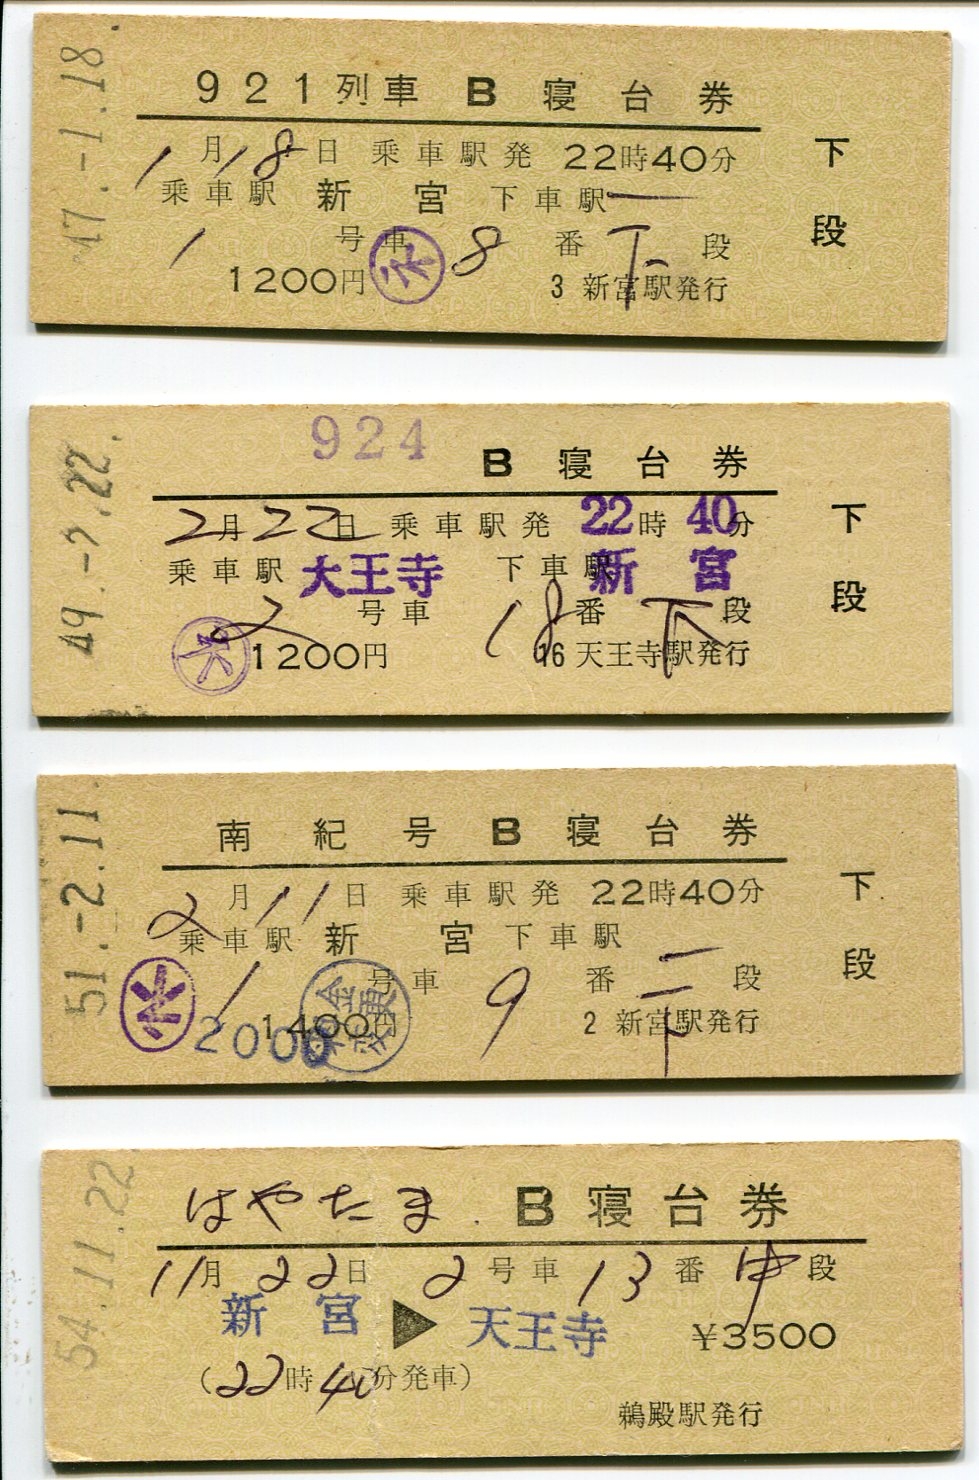 47.-1.18.
921列車 B 寝台券
1月18日 乗車駅発 22時40分
乗車駅 新宮 下車駅 ―
1号車 8番 下段
1200円 3 新宮駅発行
下段
49.-2.22.
924
B 寝台券
2月22日 乗車駅発 22時40分
乗車駅 天王寺 下車駅 新宮
2号車 18番 下段
天 1200円 16 天王寺駅発行
下段
51.-2.11.
南紀号 B 寝台券
2月11日 乗車駅発 22時40分
乗車駅 新宮 下車駅
1号車 9番 下段
1400円 2 新宮駅発行
2000
下段
54.11.22
はやたま B 寝台券
11月22日 2号車 13番 中段
新宮 ▶ 天王寺 ¥3500
(22時40分発車)
鵜殿駅発行